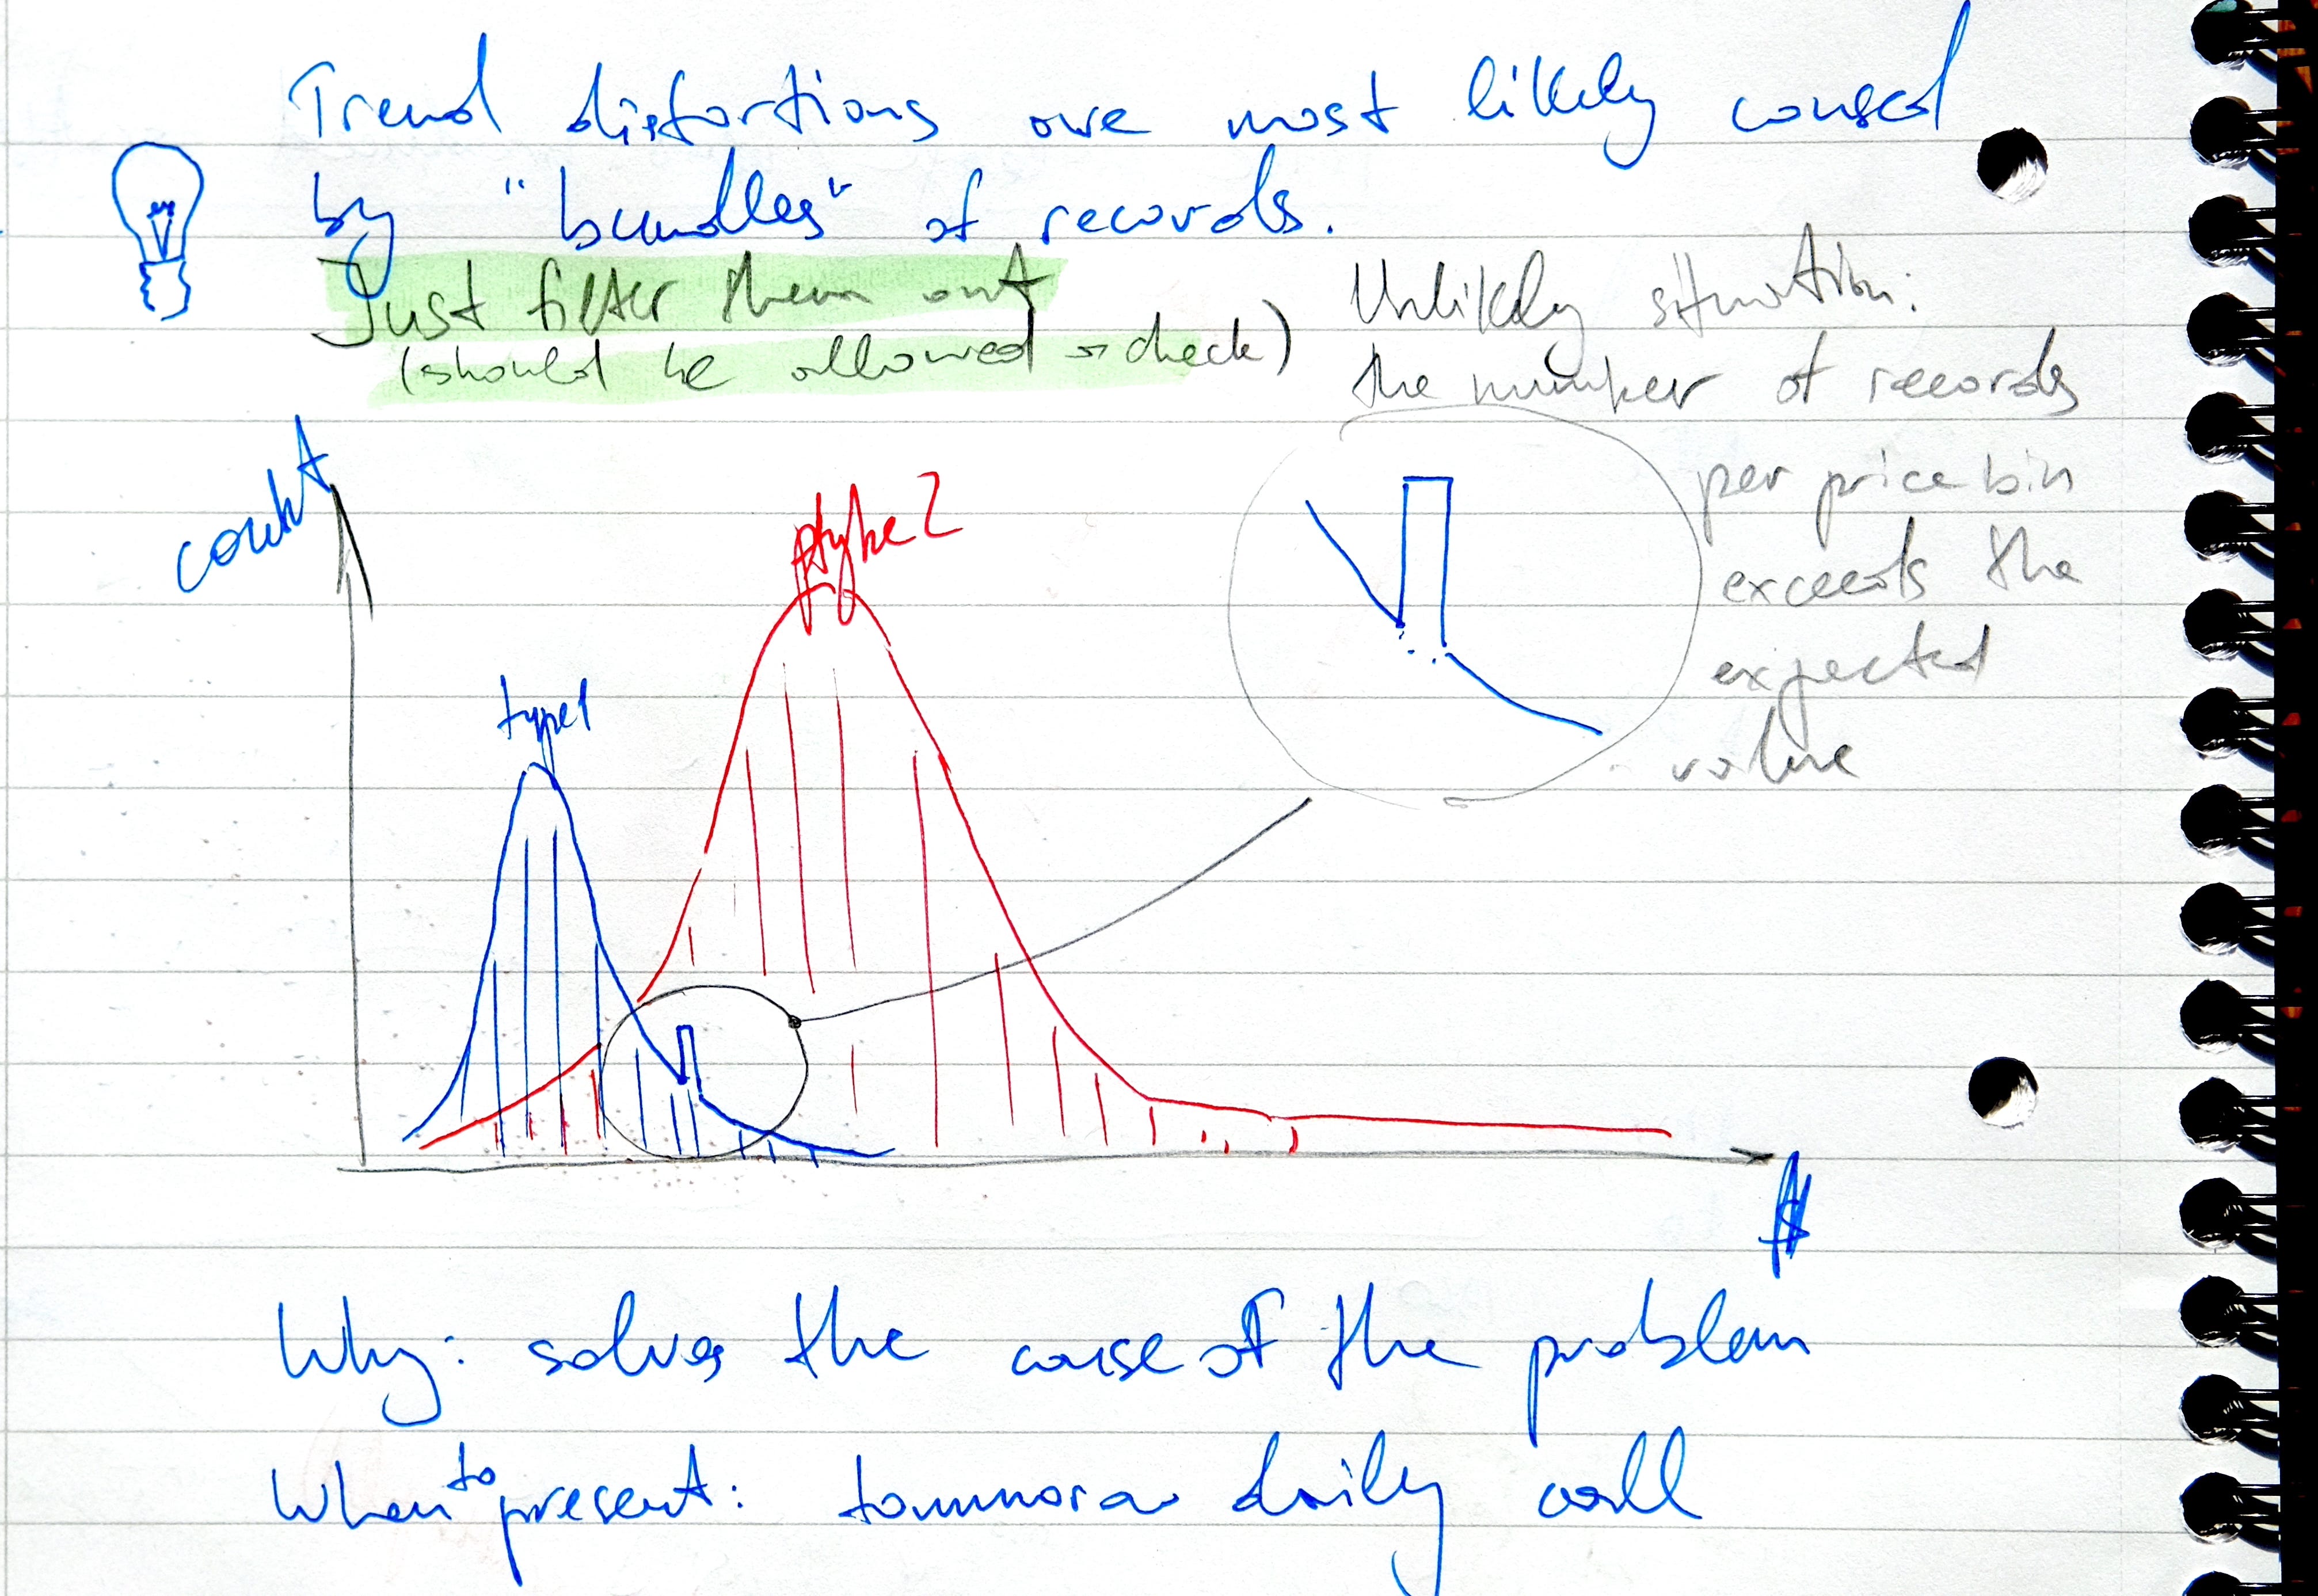 Trend distortions are most likely caused
by "bundles" of records.
Just filter them out
(should be allowed → check)
Unlikely situation:
the number of records
per price bin
exceeds the
expected
value
count
type1
type2
$
Why: solves the cause of the problem
When to present: tommorow daily call